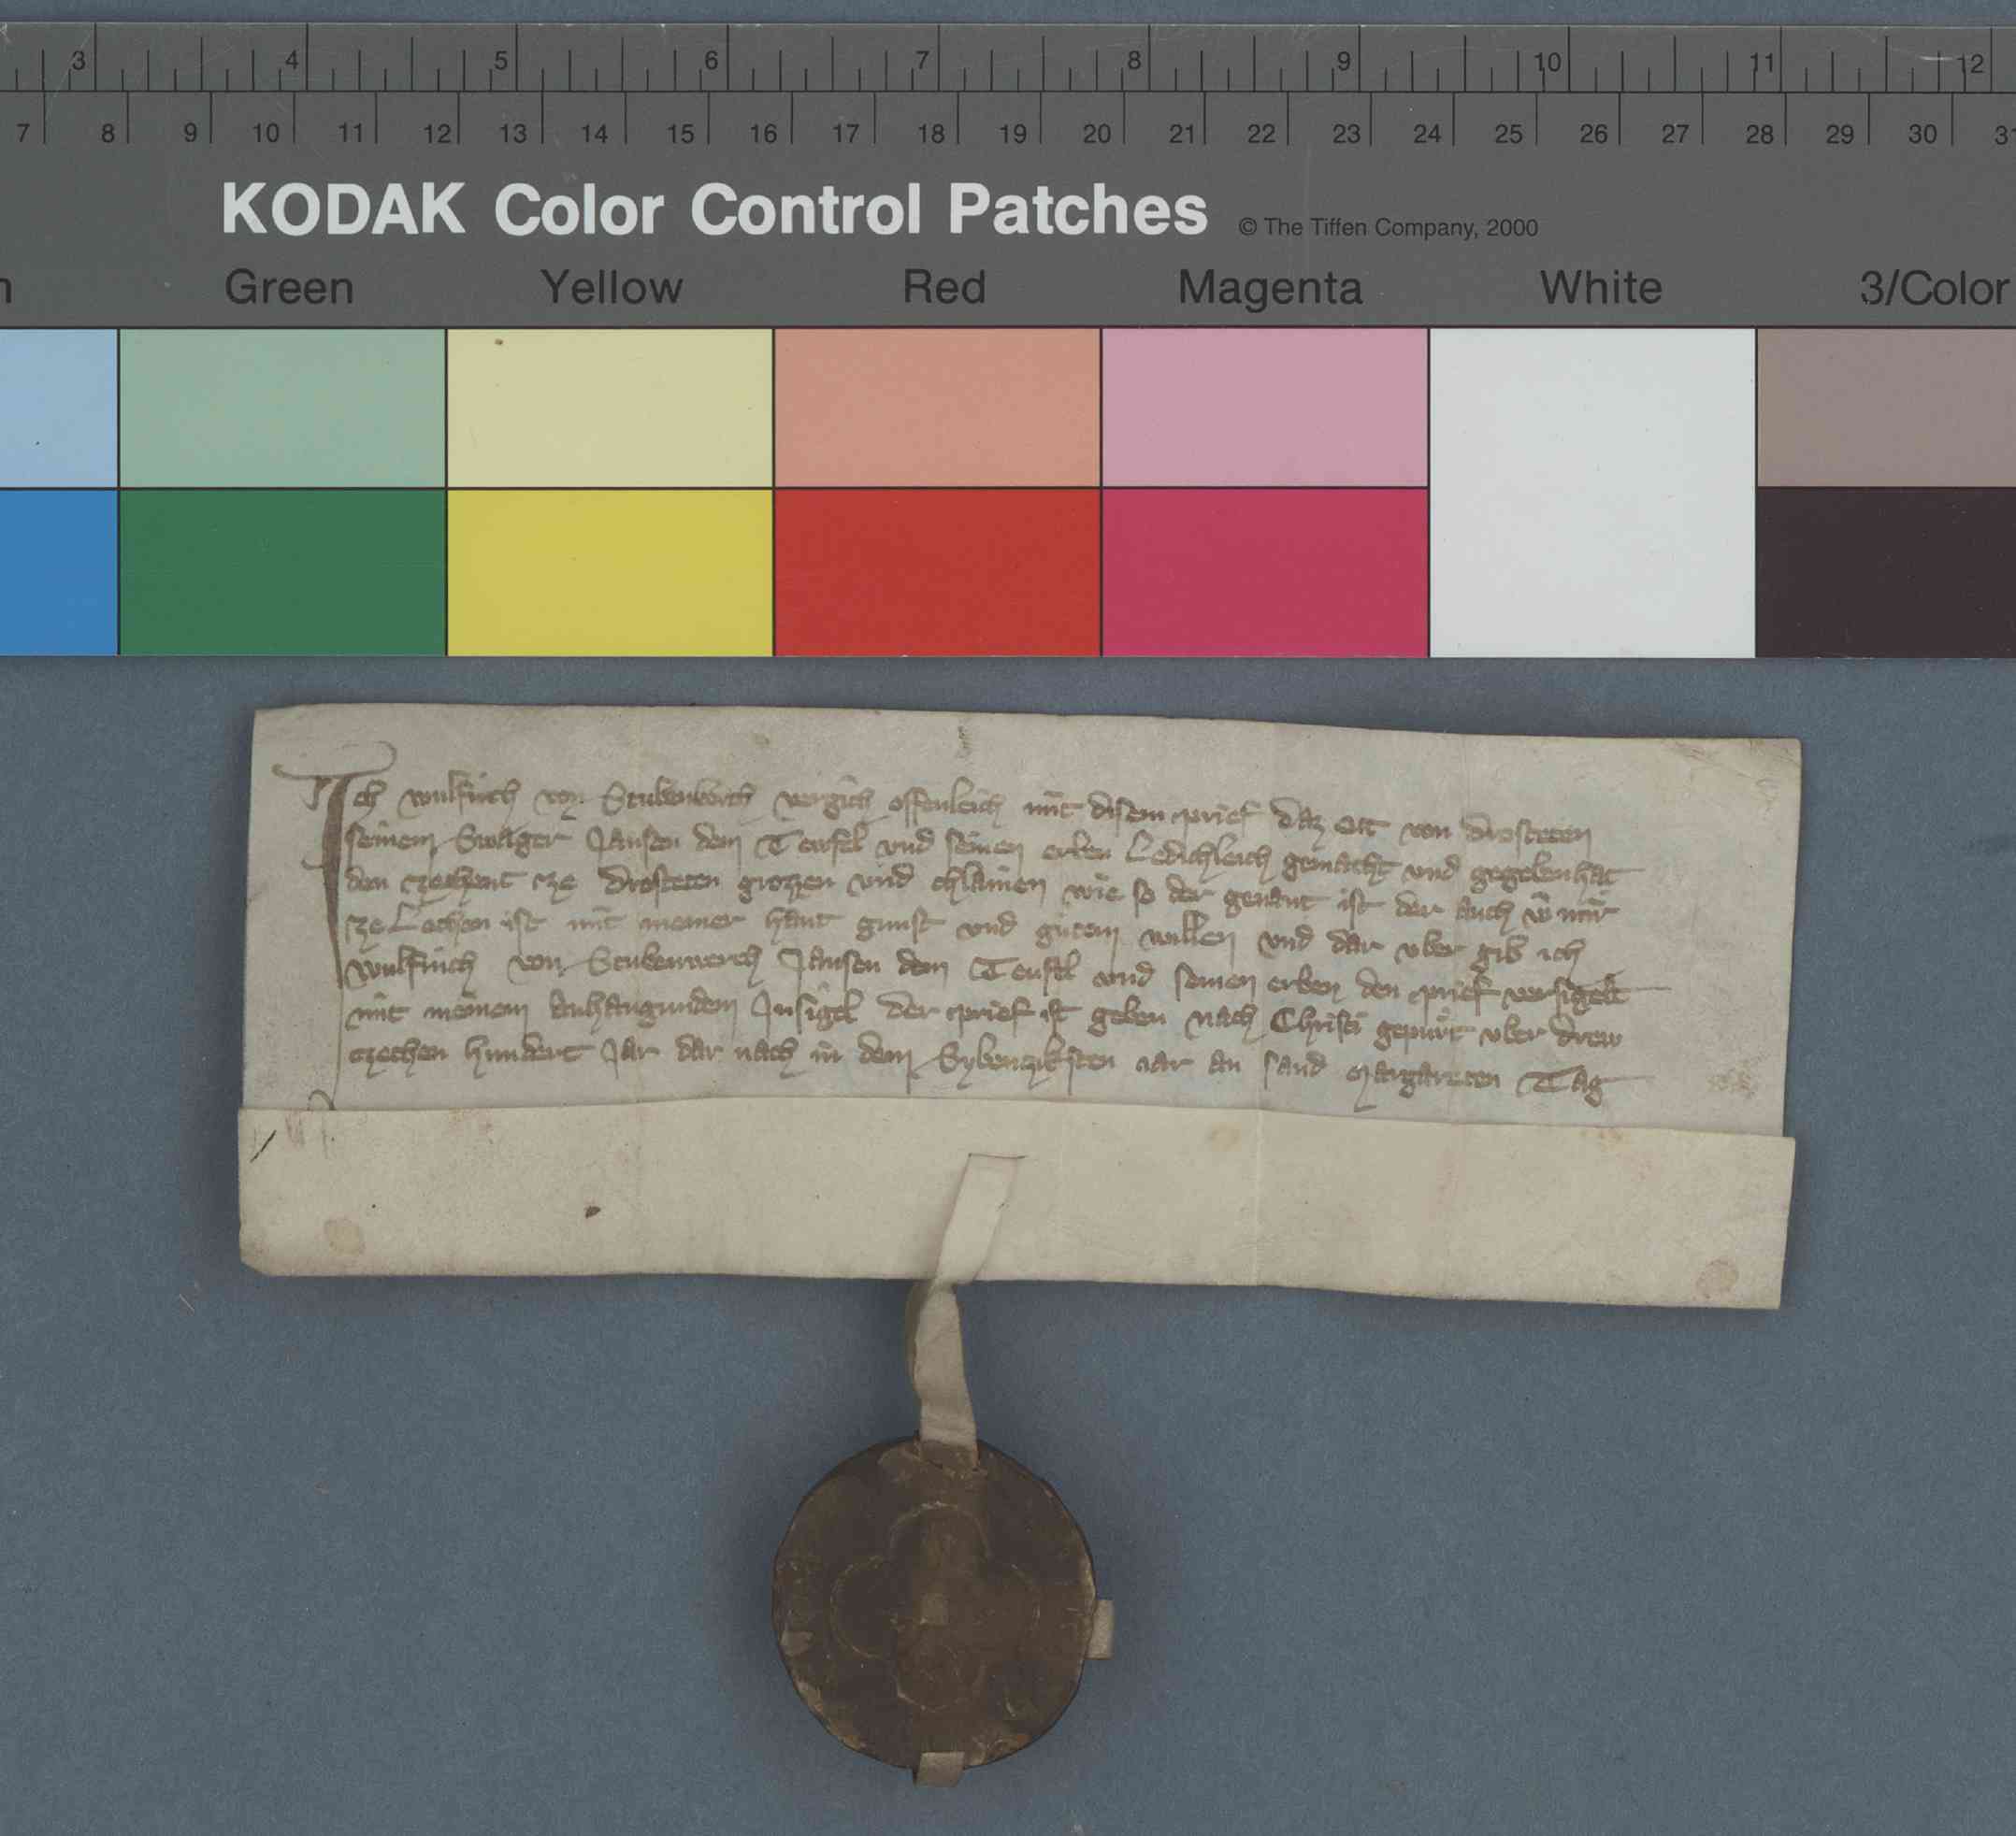 3 4 5 6 7 8 9 10 11 12
7 8 9 10 11 12 13 14 15 16 17 18 19 20 21 22 23 24 25 26 27 28 29 30 31
KODAK Color Control Patches © The Tiffen Company, 2000
Green Yellow Red Magenta White 3/Color
Ich wulfinch von Stubenberch vergich offenleich mit disem prief daz Ott von drosteten
seinem Swager Jansen dem Teufel vnd seinen erben Ledichleich gemacht vnd gegeben hat
den czechent cze drosteten grozzen vnd chlainen wie so der genant ist der auch vo mir
cze Lechen ist mit meiner hant gunst vnd gutem willen vnd dar vber gib ich
wulfinch von Stubenwerch Jansen dem Teufel vnd seinen erben den prief versigelt
mit meinem anhangunden Insigel der prief ist geben nach Christi gepurt vber drew
czechen hundert Jar dar nach in dem Sybenczikisten iar an sand Margareten Tag